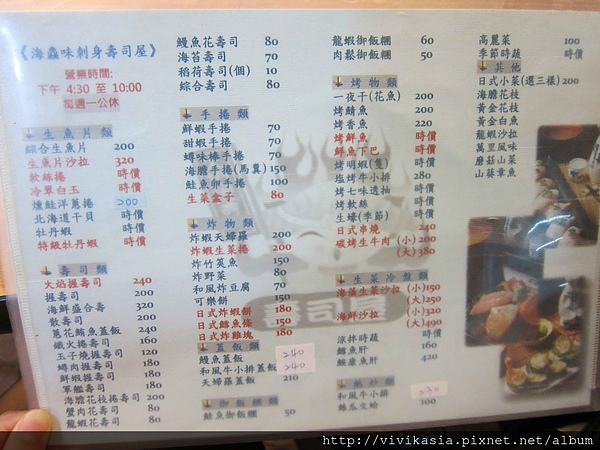 《海鱻味刺身壽司屋》
營業時間:
下午 4:30 至 10:00
每週一公休
生魚片類
綜合生魚片 200
生魚片沙拉 320
軟絲捲 時價
冷翠白玉 時價
燻鮭洋蔥捲 200
北海道干貝 時價
牡丹蝦 時價
特級牡丹蝦 時價
壽司類
火焰握壽司 240
握壽司 200
海鮮盛合壽 320
散壽司 200
蔥花鮪魚蓋飯 240
鐵火捲壽司 160
玉子燒握壽司 120
蟳肉握壽司 180
鮮蝦握壽司 180
軍艦壽司 180
海膽花枝捲壽司 200
蟹肉花壽司 80
龍蝦花壽司 80
鰻魚花壽司 80
海苔壽司 70
稻荷壽司(個) 10
綜合壽司 80
手捲類
鮮蝦手捲 70
甜蝦手捲 70
蟳味棒手捲 70
海膽手捲(馬糞)150
鮭魚卵手捲 100
生菜盒子 80
炸物類
炸蝦天婦羅 200
炸蝦生菜捲 200
炸竹筴魚 150
炸野菜 80
和風炸豆腐 70
可樂餅 150
日式炸蝦餅 180
日式鱈魚條 150
日式炸雞塊 180
蓋飯類
鰻魚蓋飯 240
和風牛小排蓋飯 240
天婦羅蓋飯 210
鮭魚御飯糰 50
龍蝦御飯糰 60
肉鬆御飯糰 50
烤物類
一夜干(花魚) 200
烤鯖魚 200
烤香魚 220
烤鮮魚 時價
烤魚下巴 時價
烤明蝦(隻) 時價
塩烤牛小排 280
烤七味透抽 時價
烤軟絲 時價
生蠔(季節) 時價
日式串燒 240
碳烤生牛肉 (小)200
(大)380
生菜冷盤類
海藻生菜沙拉(小)150
(大)250
海鮮沙拉 (小)320
(大)490
涼拌時蔬 時價
鱈魚肝 160
鮟康魚肝 420
和風牛小排 230
絲瓜文蛤 100
高麗菜 100
季節時蔬 時價
其他
日式小菜(選三樣)200
海膽花枝
黃金花枝
黃金白魚
龍蝦沙拉
萬里風味
蘑菇山菜
山葵章魚
壽司屋
http://vivikasia.pixnet.net/album